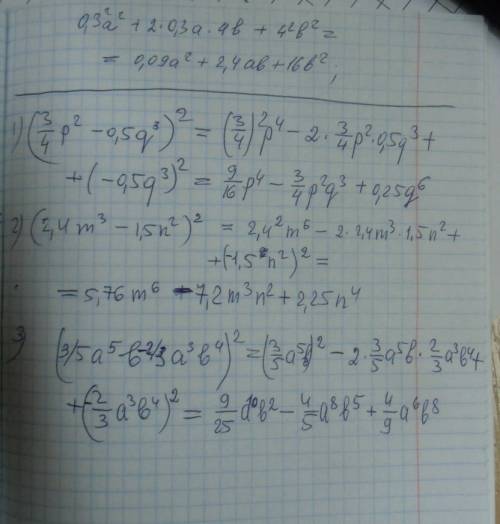 0,3²a² + 2·0,3a·4b + 4²b² =
= 0,09a² + 2,4ab + 16b²;
1) (3/4 p² - 0,5q³)² = (3/4)² p⁴ - 2·3/4 p²·0,5q³ +
+ (-0,5q³)² = 9/16 p⁴ - 3/4 p²q³ + 0,25q⁶
2) (2,4m³ - 1,5n²)² = 2,4²m⁶ - 2·2,4m³·1,5n² +
+ (-1,5n²)² =
= 5,76m⁶ - 7,2m³n² + 2,25n⁴
3) (3/5a⁵b - 2/3a³b⁴)² = (3/5 a⁵b)² - 2·3/5 a⁵b·2/3 a³b⁴ +
+ (-2/3 a³b⁴)² = 9/25 a¹⁰b² - 4/5 a⁸b⁵ + 4/9 a⁶b⁸